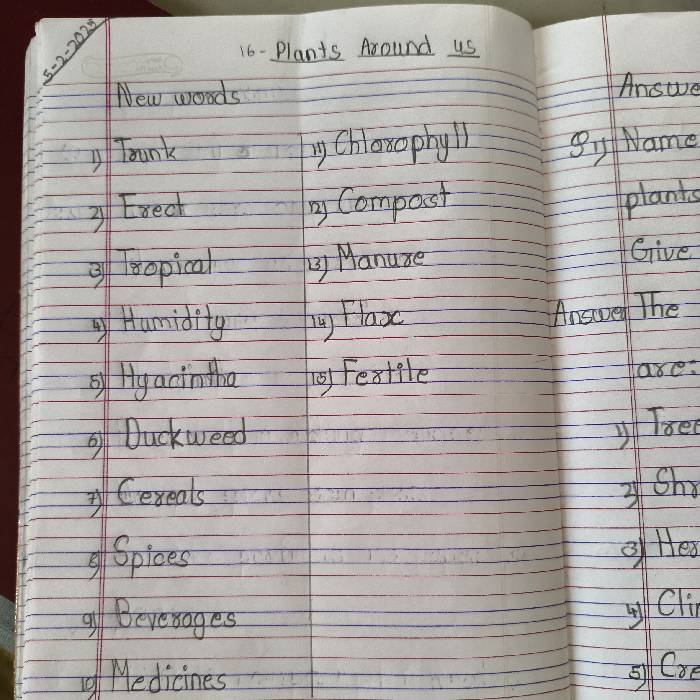 5-2-2025
16- Plants Around us
New words
1) Trunk
2) Erect
3) Tropical
4) Humidity
5) Hyacintha
6) Duckweed
7) Cereals
8) Spices
9) Beverages
10) Medicines
11) Chlorophyll
12) Compost
13) Manure
14) Flax
15) Fertile
Answe
Q1) Name
plants
Give
Answer The
are:
1) Tree
2) Shr
3) Her
4) Clim
5) Cre